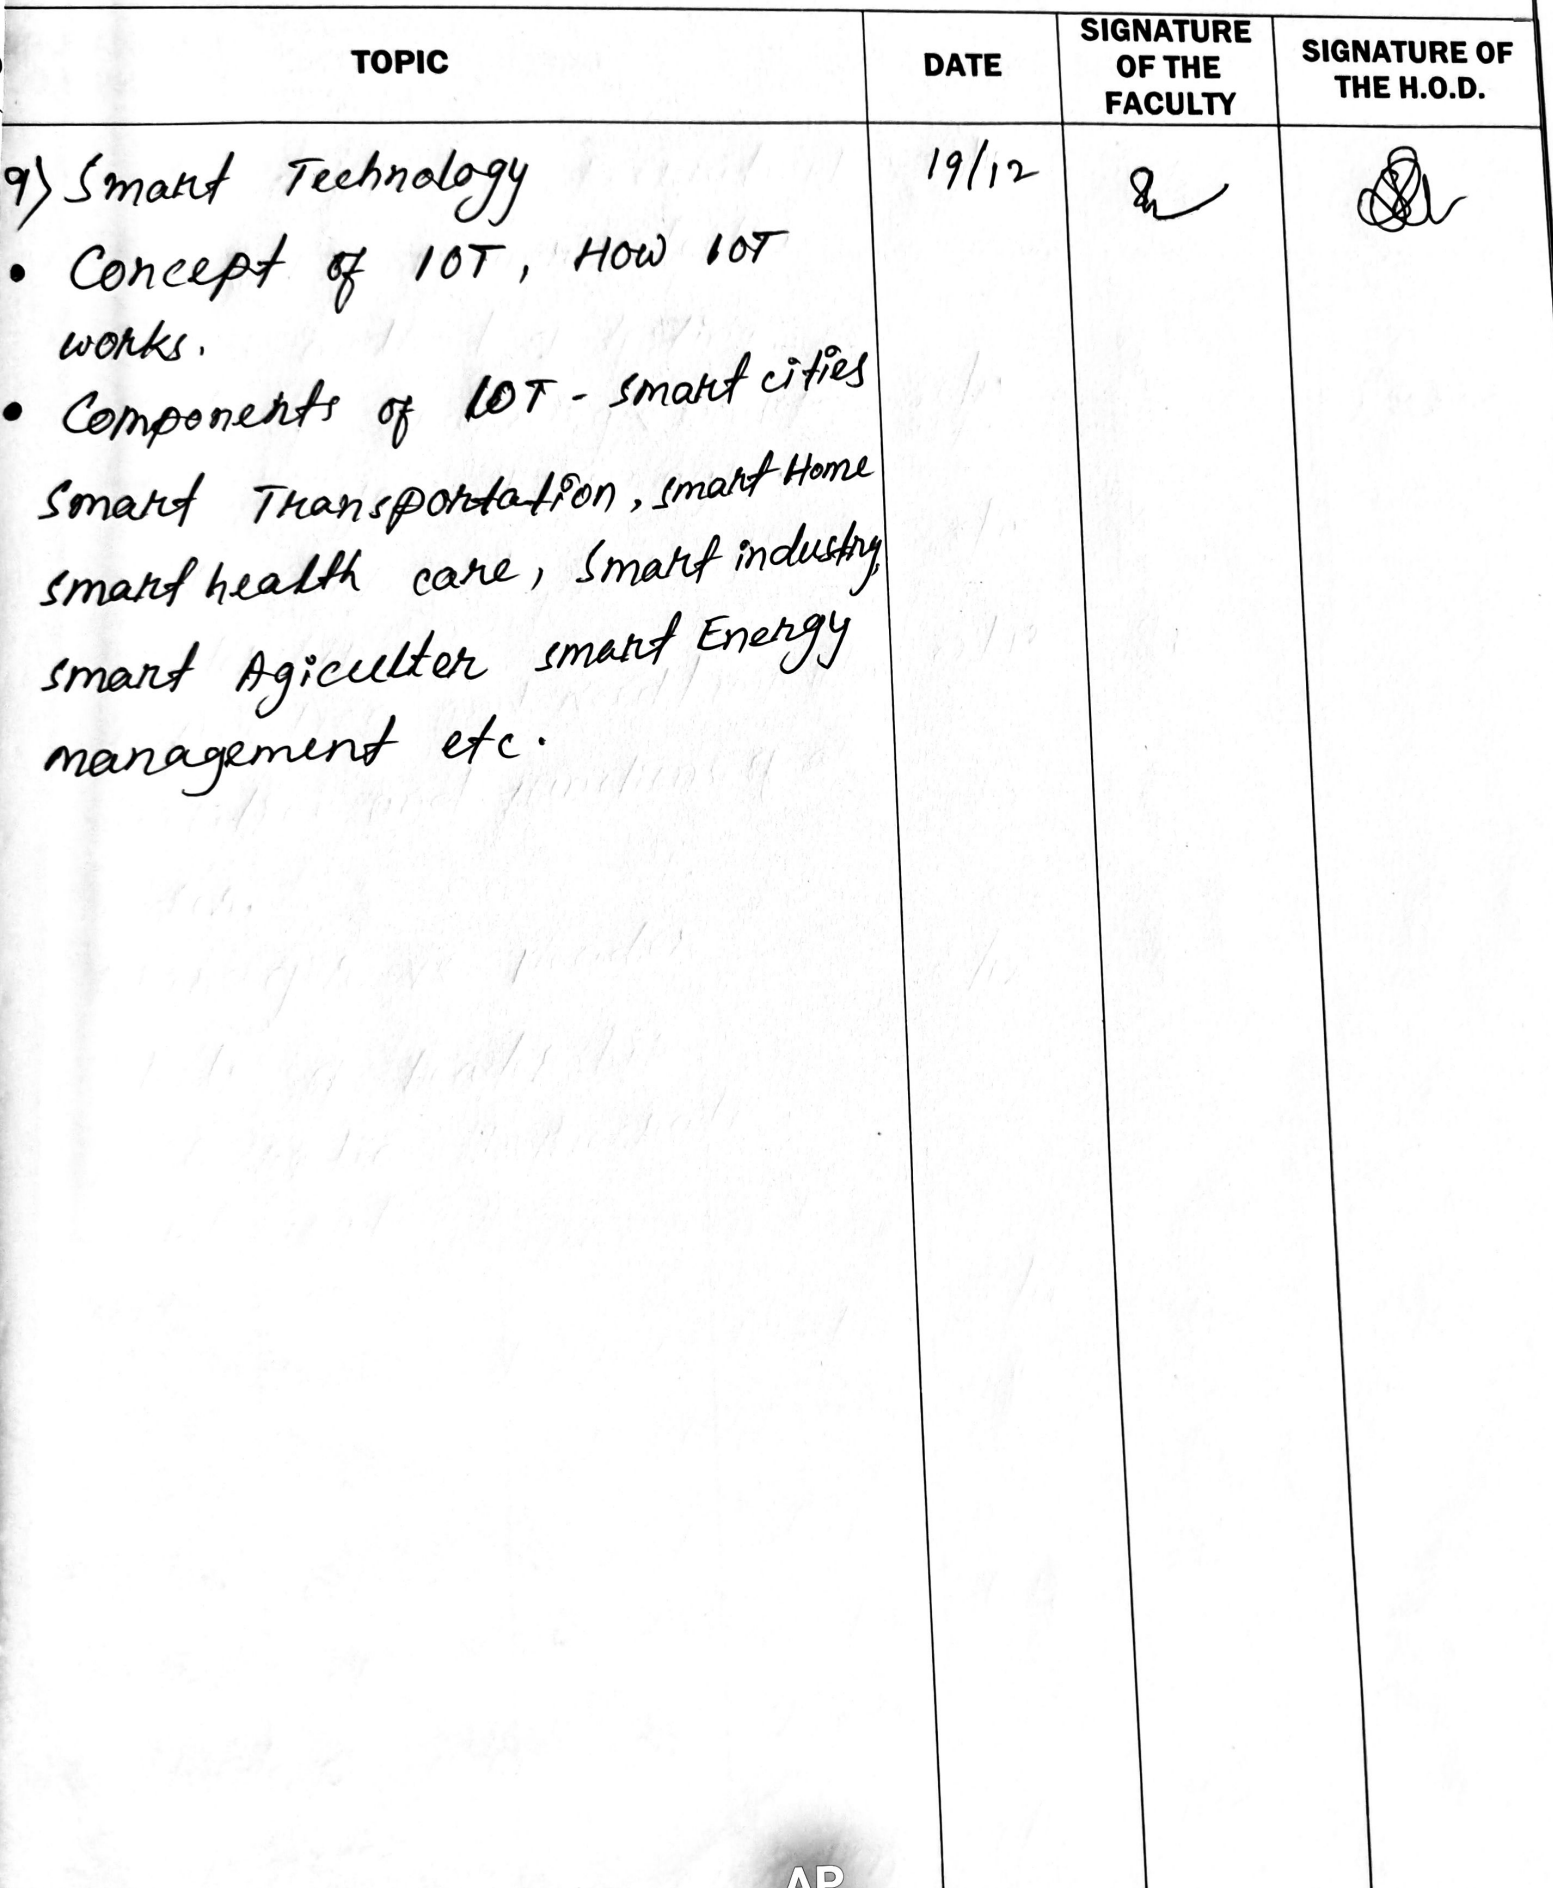 TOPIC DATE SIGNATURE OF THE FACULTY SIGNATURE OF THE H.O.D.
9) Smart Technology 19/12
• Concept of IOT, How IOT
works.
• Components of IOT - smart cities
Smart Transportation, smart Home
smart health care, smart industry,
smart Agiculter smart Energy
management etc.
AP